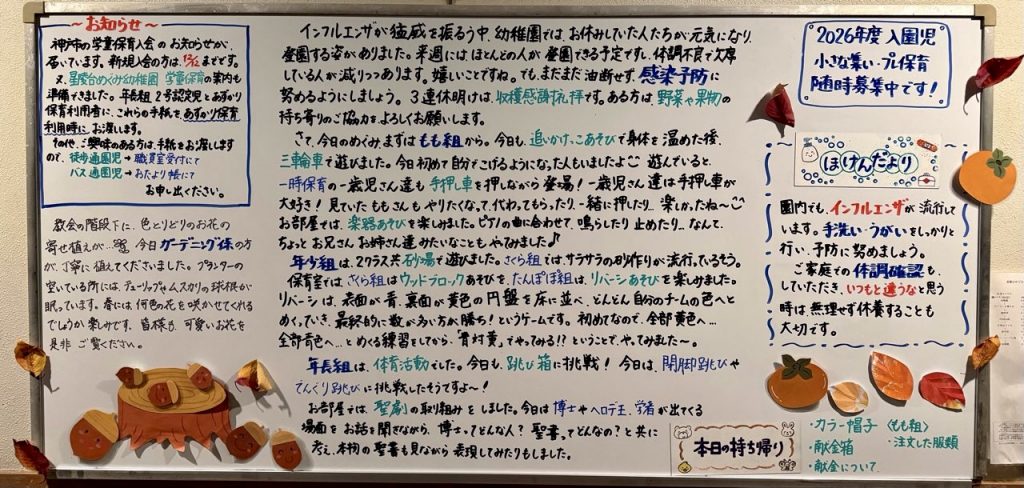 ～ お知らせ ～
神戸市の学童保育入会のお知らせが、
届いています。新規入会の方は、12/2までです。
又、星陵台めぐみ幼稚園 学童保育の案内も
準備できました。年長組 2号認定児とあずかり
保育利用者に、これらの手紙を、あずかり保育
利用時に、お渡します。
その他、ご興味のある方は、手紙をお渡しします
ので、徒歩通園児→職員室受付にて
バス通園児→おたより帳にて
お申し出ください。
教会の階段下に、色とりどりのお花の
寄せ植えが…。今日ガーデニング係の方
が、丁寧に植えてくださいました。プランターの
空いている所には、チューリップ&ムスカリの球根が
眠っています。春には、何色の花を咲かせてくれる
でしょうか楽しみです。皆様も、可愛いお花を
是非ご覧ください。
インフルエンザが猛威を振るう中、幼稚園では、お休みしていた人たちが元気になり、
登園する姿がありました。来週には、ほとんどの人が登園できる予定ですし、体調不良で欠席
している人が減りつつあります。嬉しいことですね。でも、まだまだ油断せず、感染予防に
努めるようにしましょう。3連休明けは、収穫感謝礼拝です。ある方は、野菜や果物の
持ち寄りのご協力をよろしくお願いします。
さて、今日のめぐみ、まずはもも組から。今日も、追いかけっこあそびで身体を温めた後、
三輪車で遊びました。今日初めて自分でこげるようになった人もいましたよ 遊んでいると、
一時保育の一歳児さん達も手押し車を押しながら登場!一歳児さん達は手押し車が
大好き!見ていたももさんもやりたくなって、代わってもらったり、一緒に押したり…楽しかったね〜
お部屋では、楽器あそびを楽しみました。ピアノの曲に合わせて、鳴らしたり止めたり…なんて、
ちょっとお兄さんお姉さん達みたいなこともやってみました♪
年少組は、2クラス共砂場で遊びました。さくら組では、サラサラの砂作りが流行っているそう。
保育室では、さくら組はウッドブロックあそびを、たんぽぽ組は、リバーシあそびを楽しみました。
リバーシは、表面が青、裏面が黄色の円盤を床に並べ、どんどん自分のチームの色へと
めくっていき、最終的に数が多い方が勝ち!というゲームです。初めてなので、全部黄色へ…
全部青色へ…とめくる練習をしてから、「青対黄」でやってみる!!ということで、やってみました〜。
年長組は、体育活動でした。今日も、跳び箱に挑戦!今日は、閉脚跳びや
でんぐり跳びに挑戦したそうですよ〜!
お部屋では、聖劇の取り組みをしました。今日は博士やヘロデ王、学者が出てくる
場面をお話を聞きながら、博士ってどんな人?聖書ってどんなの?と共に
考え、本物の聖書も見ながら表現してみたりもしました。
2026年度 入園児
小さな集い・プレ保育
随時募集中です!
ほけんだより
園内でも、インフルエンザが流行って
います。手洗い・うがいをしっかりと
行い、予防に努めましょう。
ご家庭での体調確認も、
していただき、いつもと違うなと思う
時は、無理せず休養することも
大切です。
本日の持ち帰り
・カラー帽子 〈もも組〉
・献金箱 ・注文した服類
・献金について